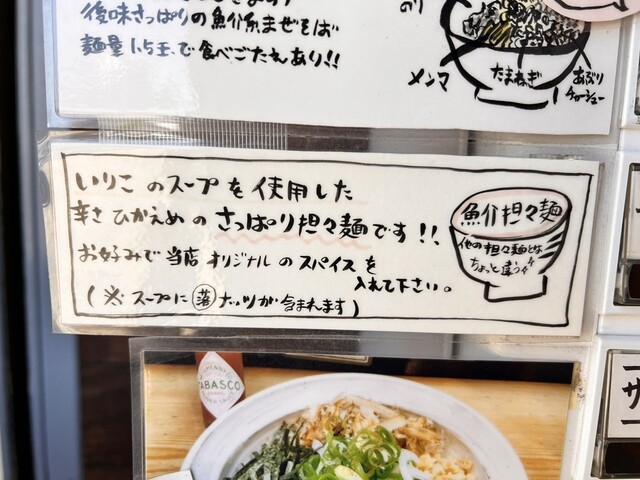 後味さっぱりの魚介系まぜそば
麺量1.5玉で食べごたえあり!!
のり
メンマ
たまねぎ
あぶり
チャーシュー
いりこのスープを使用した
辛さひかえめのさっぱり担々麺です!!
お好みで当店オリジナルのスパイスを
入れて下さい。
(※スープに落ナッツが含まれます)
魚介担々麺
他の担々麺とは
ちょっと違う
TABASCO